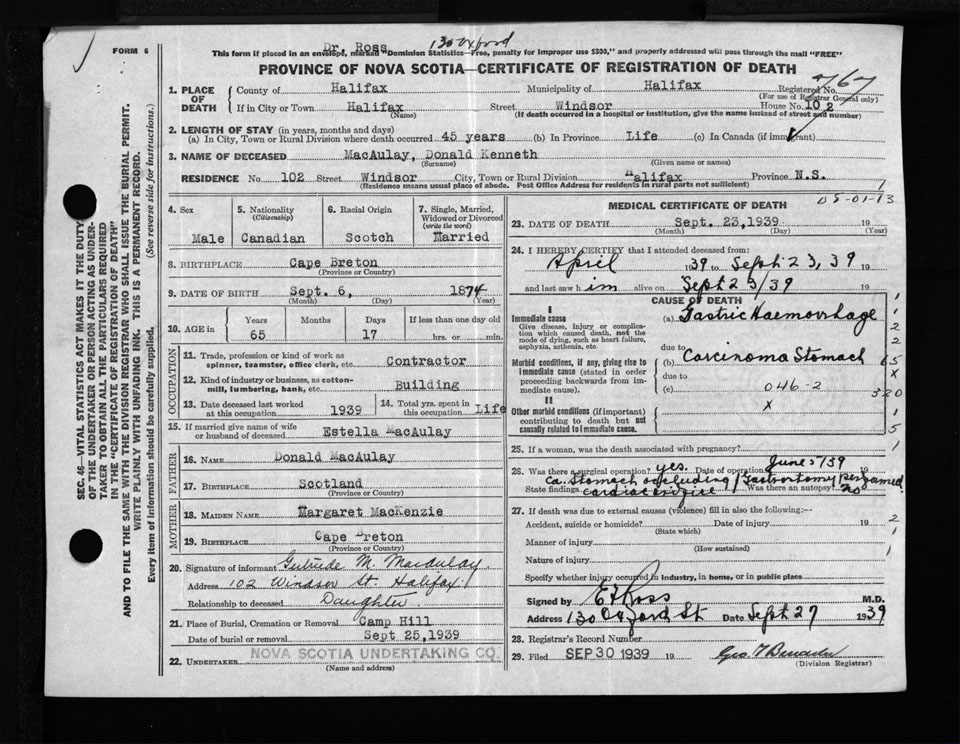 FORM 6
Dr. Ross 130 Oxford
This form if placed in an envelope, marked "Dominion Statistics—Free, penalty for improper use $300," and properly addressed will pass through the mail "FREE"
PROVINCE OF NOVA SCOTIA—CERTIFICATE OF REGISTRATION OF DEATH
1. PLACE OF DEATH County of Halifax Municipality of Halifax Registered No. 767
(For use of Registrar General only)
If in City or Town Halifax Street Windsor House No. 102
(Name) (If death occurred in a hospital or institution, give the name instead of street and number)
2. LENGTH OF STAY (in years, months and days)
(a) In City, Town or Rural Division where death occurred 45 years (b) In Province Life (c) In Canada (if immigrant)
3. NAME OF DECEASED MacAulay, Donald Kenneth
(Surname) (Given name or names)
RESIDENCE No. 102 Street Windsor City, Town or Rural Division Halifax Province N.S.
(Residence means usual place of abode. Post Office Address for residents in rural parts not sufficient)
4. Sex Male
5. Nationality (Citizenship) Canadian
6. Racial Origin Scotch
7. Single, Married, Widowed or Divorced (write the word) Married
8. BIRTHPLACE Cape Breton
(Province or Country)
9. DATE OF BIRTH Sept. 6, 1874
(Month) (Day) (Year)
10. AGE in Years Months Days If less than one day old
65 17 hrs. or min.
OCCUPATION
11. Trade, profession or kind of work as spinner, teamster, office clerk, etc. Contractor
12. Kind of industry or business, as cotton-mill, lumbering, bank, etc. Building
13. Date deceased last worked at this occupation 1939
14. Total yrs. spent in this occupation Life
15. If married give name of wife or husband of deceased Estella MacAulay
FATHER
16. Name Donald MacAulay
17. Birthplace Scotland
(Province or Country)
MOTHER
18. Maiden Name Margaret MacKenzie
19. Birthplace Cape Breton
(Province or Country)
20. Signature of informant Gertrude M. MacAulay
Address 102 Windsor St. Halifax
Relationship to deceased Daughter
21. Place of Burial, Cremation or Removal Camp Hill
Date of burial or removal Sept 25,1939
22. UNDERTAKER NOVA SCOTIA UNDERTAKING CO.
(Name and address)
MEDICAL CERTIFICATE OF DEATH
23. DATE OF DEATH Sept. 23,1939 19
(Month) (Day) (Year)
24. I HEREBY CERTIFY that I attended deceased from:
April 1939 to Sept 23, 39 19
and last saw him alive on Sept 23/39 19
CAUSE OF DEATH
I
Immediate cause (a) Gastric Haemorrhage
Give disease, injury or complication which caused death, not the mode of dying, such as heart failure, asphyxia, asthenia, etc.
due to
Morbid conditions, if any, giving rise to immediate cause (stated in order proceeding backwards from immediate cause).
(b) Carcinoma Stomach
due to
(c) 046-2
II
Other morbid conditions (if important) contributing to death but not causally related to immediate cause.
X
320
25. If a woman, was the death associated with pregnancy?
26. Was there a surgical operation? yes. Date of operation June 5/39
State findings Ca. Stomach occluding cardiac orifice / Gastrostomy performed. Was there an autopsy? no
27. If death was due to external causes (violence) fill in also the following:—
Accident, suicide or homicide? Date of injury 19
(State which)
Manner of injury
(How sustained)
Nature of injury
Specify whether injury occurred in industry, in home, or in public place
Signed by E F Ross M.D.
Address 130 Oxford St Date Sept 27 1939
28. Registrar's Record Number
29. Filed SEP 30 1939
(Division Registrar)
SEC. 46—VITAL STATISTICS ACT MAKES IT THE DUTY
OF THE UNDERTAKER OR PERSON ACTING AS UNDER-
TAKER TO OBTAIN ALL THE PARTICULARS REQUIRED
IN THE "CERTIFICATE OF REGISTRATION OF DEATH"
AND TO FILE THE SAME WITH THE DIVISION REGISTRAR WHO SHALL ISSUE THE BURIAL PERMIT.
WRITE PLAINLY WITH UNFADING INK. THIS IS A PERMANENT RECORD.
Every item of information should be carefully supplied. (See reverse side for instructions.)